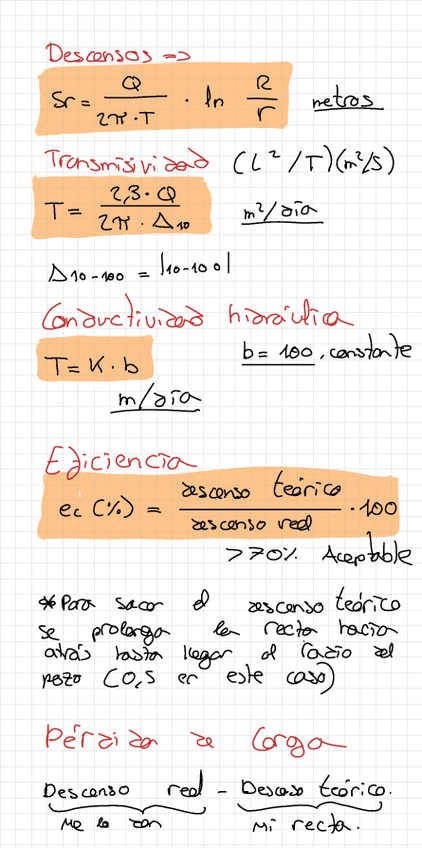 Descensos =>
Sr = Q / 2π·T · ln R / r metros
Transmisividad (L²/T)(m²/s)
T = 2,3·Q / 2π·Δ10 m²/día
Δ10-100 = |10-100|
Conductividad hidráulica
T = K·b b = 100, constante
m/día
Eficiencia
ec (%) = descenso teórico / descenso real · 100
>70% Aceptable
*Para sacar el descenso teórico
se prolonga la recta hacia
atrás hasta llegar al radio del
pozo (0,5 en este caso)
Pérdida de Carga
Descenso real - Descenso teórico.
Me lo dan Mi recta.